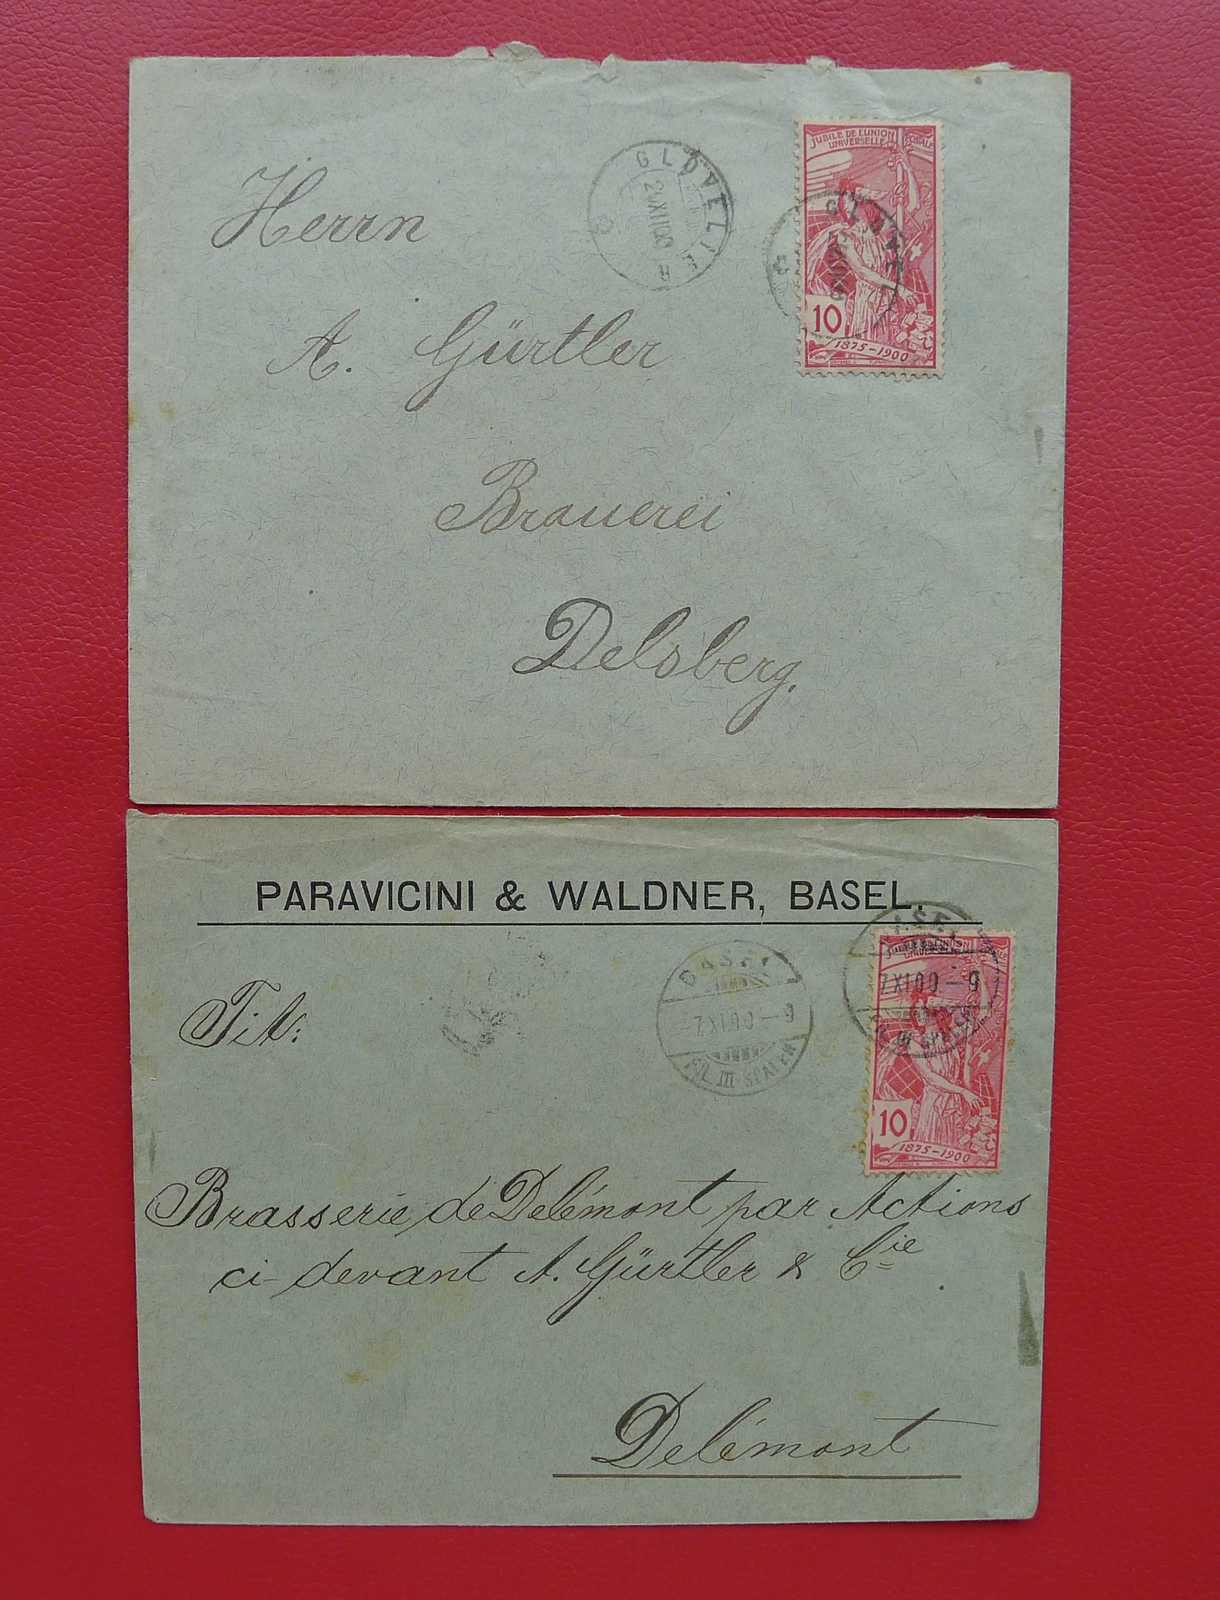 GLOVELIER
2 XII 00
JUBILÉ DE L'UNION POSTALE
UNIVERSELLE
GLOVE
10
1875-1900
Herrn
A. Gürtler
Brauerei
Delsberg.
PARAVICINI & WALDNER, BASEL.
BASEL
7.XI.00 - 9
FIL. III SPALEN
JUBILÉ DE L'UNION POSTALE
UNIVERSELLE
7 XI 00 - 9
III SPALEN
10
1875-1900
Tit:
Brasserie de Delémont par Actions
ci-devant A. Gürtler & Cie
Delémont